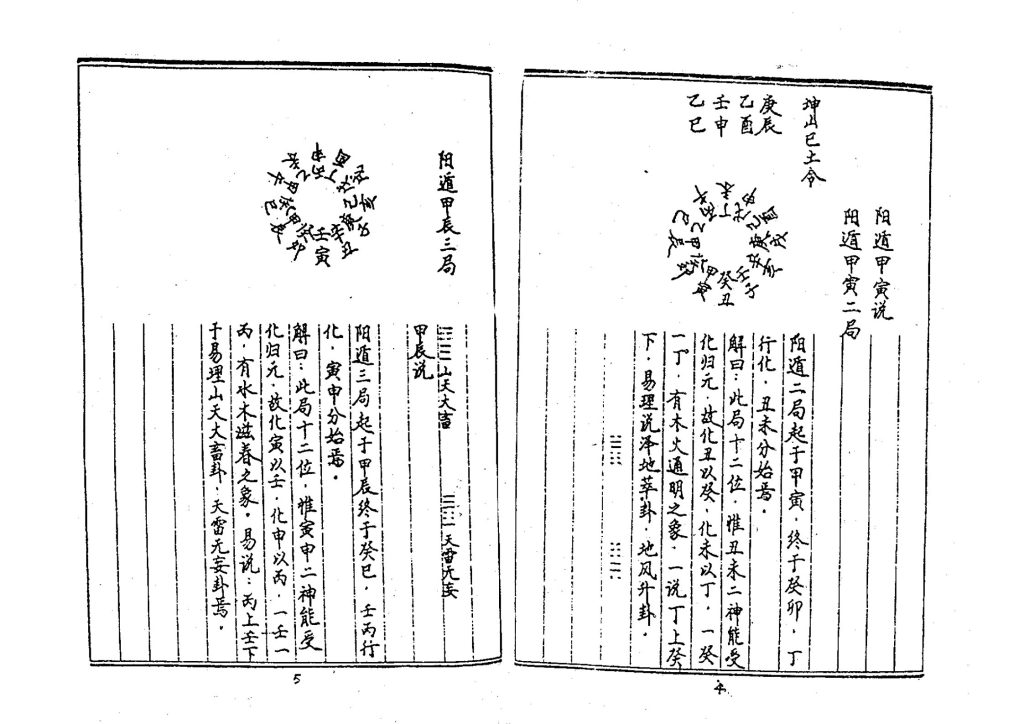 坤山巳土令
庚辰
乙酉
壬申
乙巳
阳遁甲寅说
阳遁甲寅二局
癸丑
阳遁二局起于甲寅，终于癸卯，丁
行化，丑未分始焉。
解曰：此局十二位，惟丑未二神能受
化归元，故化丑以癸，化未以丁，一癸
一丁，有木火通明之象，一说丁上癸
下，易理说泽地萃卦，地风升卦。
4
阳遁甲辰三局
壬寅
山天大畜 天雷无妄
甲辰说
阳遁三局起于甲辰终于癸巳，壬丙行
化，寅申分始焉。
解曰：此局十二位，惟寅申二神能受
化归元，故化寅以壬，化申以丙，一壬一
丙，有水木滋春之象。易说：丙上壬下
于易理山天大畜卦，天雷无妄卦焉。
5